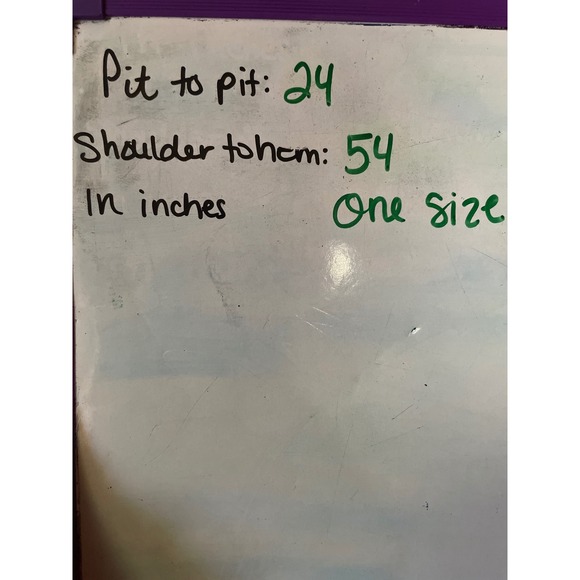 Pit to pit: 24
Shoulder to hem: 54
In inches One size